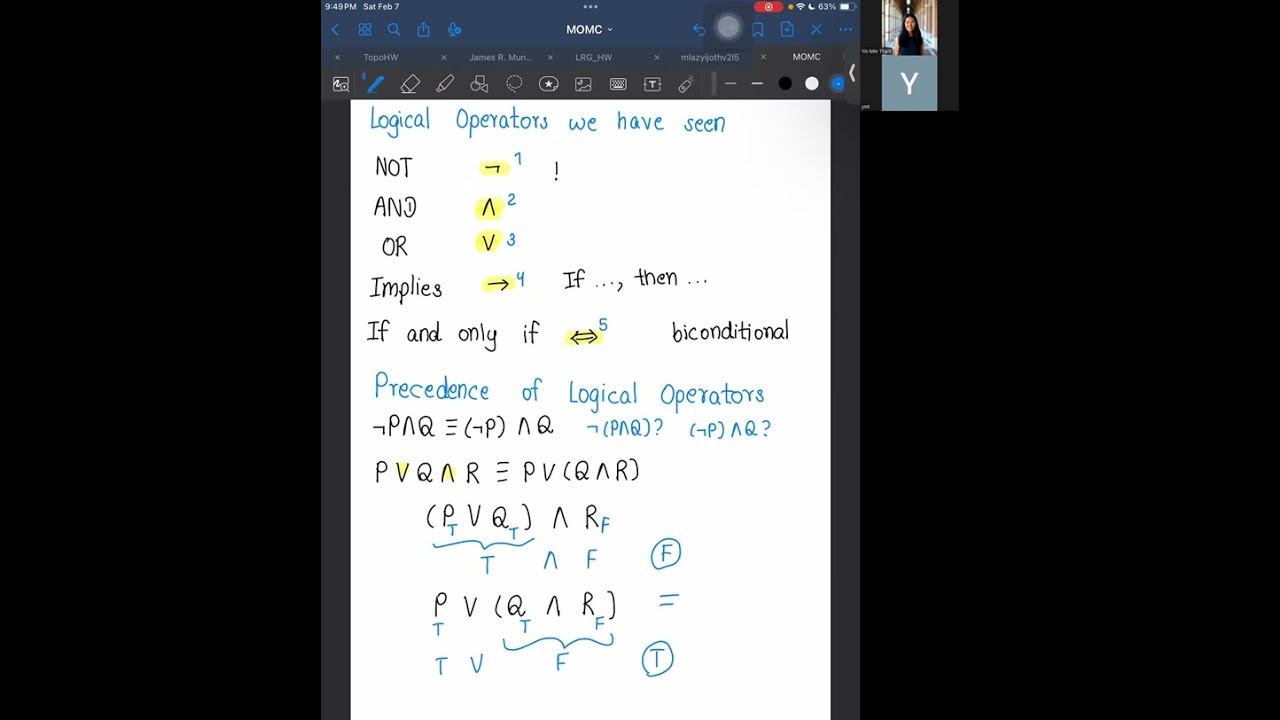 9:49 PM Sat Feb 7
63%
MOMC
TopoHW
James R. Mun...
LRG_HW
mlazyijothv2l5
MOMC
Yin Min Thant
Y
ymt
Logical Operators we have seen
NOT ¬ 1 !
AND ∧ 2
OR ∨ 3
Implies → 4 If ..., then ...
If and only if ⇔ 5 biconditional
Precedence of Logical Operators
¬P∧Q ≡ (¬P) ∧ Q ¬(P∧Q)? (¬P)∧Q?
P ∨ Q ∧ R ≡ P ∨ (Q ∧ R)
(P ∨ Q) ∧ R
T T F
T ∧ F F
P ∨ (Q ∧ R) =
T T F
T ∨ F T